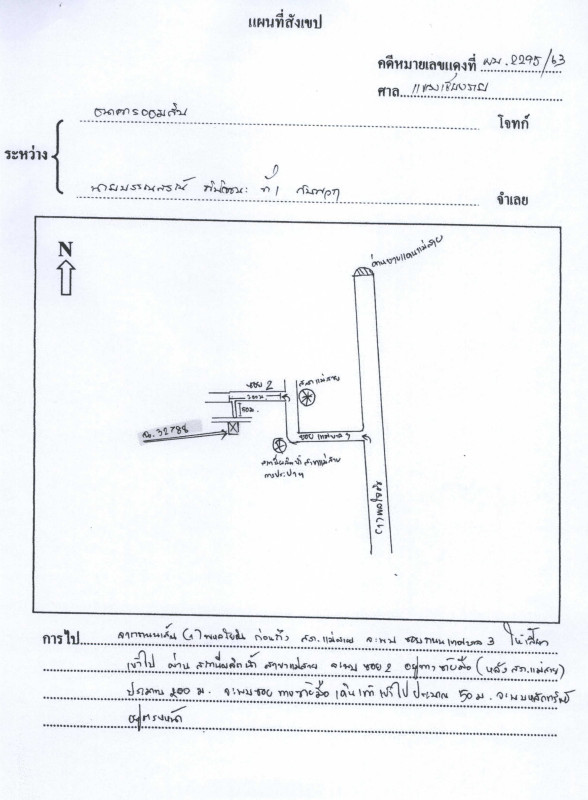 แผนที่สังเขป
คดีหมายเลขแดงที่ ผบ.2295/63
ศาล แขวงเชียงราย
ธนาคารออมสิน
โจทก์
ระหว่าง
ที่ 1 กับพวก
จำเลย
N
ด่านชายแดนแม่สาย
ซอย 2
สภ.แม่สาย
200 ม.
50 ม.
ฉ. 32788
ซอย เทศบาล 3
สถานีผลิตน้ำ สาขาแม่สาย
การประปาฯ
(1) พหลโยธิน
การไป จากถนนเส้น (1) พหลโยธิน ก่อนถึง สภ.แม่สาย จะพบ ซอยถนนเทศบาล 3 ให้เลี้ยว
เข้าไป ผ่าน สถานีผลิตน้ำ สาขาแม่สาย จะพบ ซอย 2 อยู่ทางซ้ายมือ (หลัง สภ.แม่สาย)
ประมาณ 200 ม. จะพบซอย ทางซ้ายมือ เดินเท้า เข้าไป ประมาณ 50 ม. จะพบหลักทรัพย์
อยู่ตรงหน้า